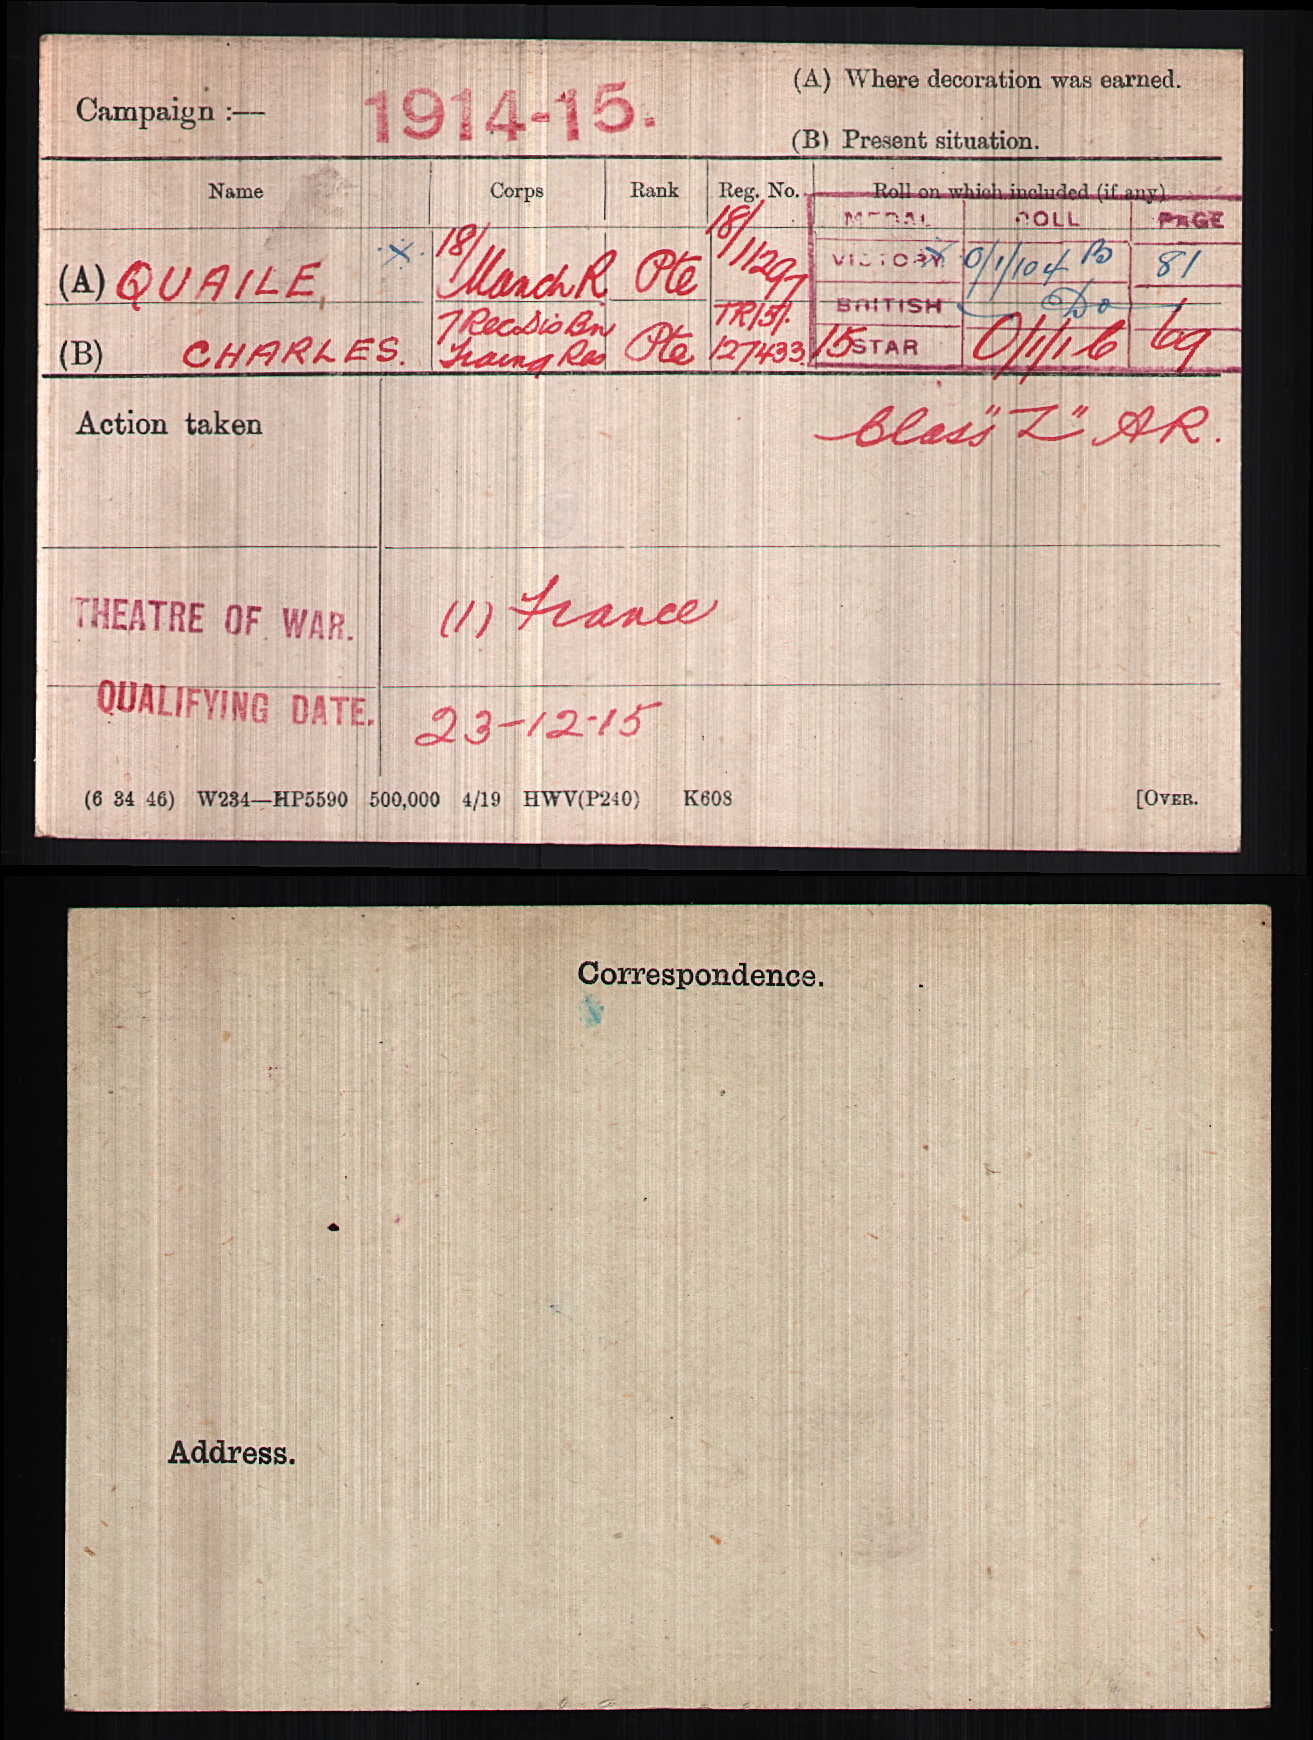 (A) Where decoration was earned.
Campaign :— 1914-15.
(B) Present situation.
Name Corps Rank Reg. No. Roll on which included (if any)
MEDAL ROLL PAGE
(A) QUAILE, X. 18/ Manch R Pte 18/11297 VICTORY X 0/1/104 B 81
BRITISH Do
(B) CHARLES. 7 Rec Dis Bn Traing Res Pte TR/5/. 127433 15 STAR 0/1/1 6 69
Action taken Class "Z" AR.
THEATRE OF WAR. (1) France
QUALIFYING DATE. 23-12-15
(6 34 46) W234—HP5590 500,000 4/19 HWV(P240) K608 [OVER.
Correspondence.
Address.